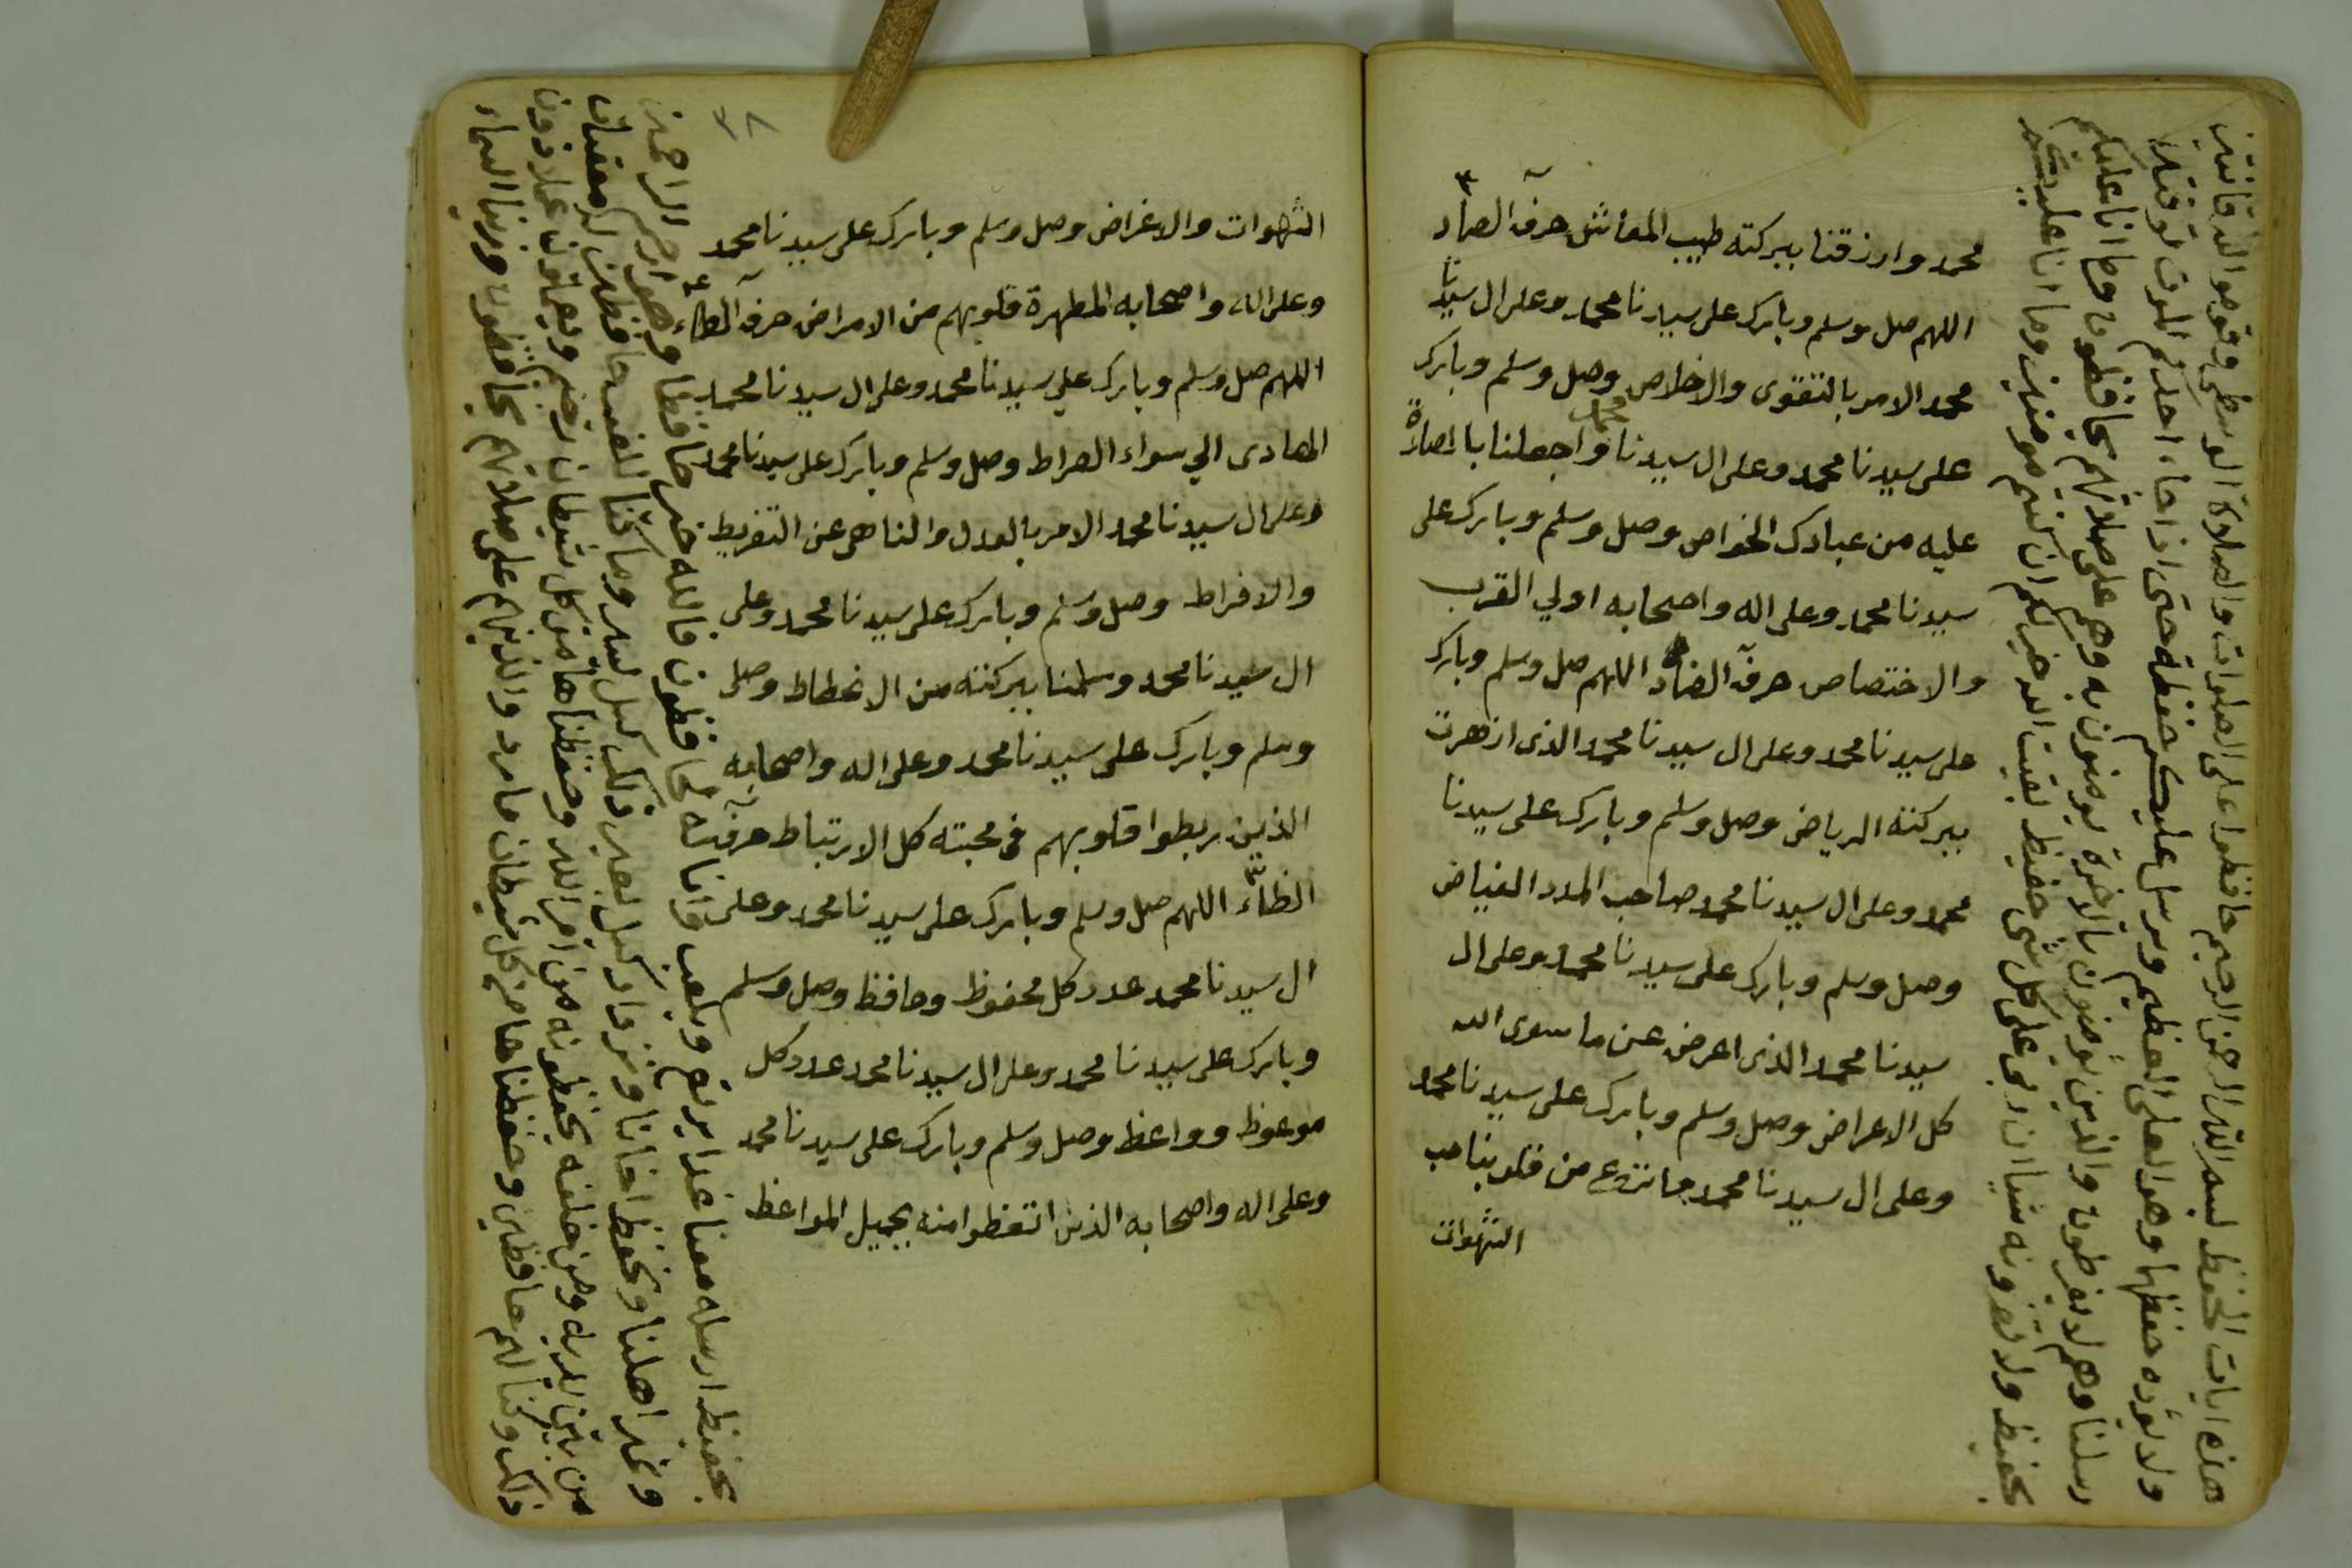 محمد وارزقنا ببركته طيب المعاش حرف الصاد
اللهم صل وسلم وبارك على سيدنا محمد وعلى ال سيدنا
محمد الامر بالتقوى والاخلاص وصل وسلم وبارك
على سيدنا محمد وعلى ال سيدنا محمد واجعلنا بالصلاة
عليه من عبادك الخواص وصل وسلم وبارك على
سيدنا محمد وعلى اله واصحابه اولي القرب
والاختصاص حرف الضاد اللهم صل وسلم وبارك
على سيدنا محمد وعلى ال سيدنا محمد الذى ازهرت
ببركته الرياض وصل وسلم وبارك على سيدنا
محمد وعلى ال سيدنا محمد صاحب المدد الفياض
وصل وسلم وبارك على سيدنا محمد وعلى ال
سيدنا محمد الذى اعرض عن ما سوى الله
كل الاعراض وصل وسلم وبارك على سيدنا محمد
وعلى ال سيدنا محمد ما نزع من قلوبنا حب
الشهوات
هذه ايات الحفظ بسم الله الرحمن الرحيم حافظوا على الصلوات والصلاة الوسطى وقوموا لله قانتين
ولا يؤده حفظهما وهو العلى العظيم ويرسل عليكم حفظة حتى اذا جاء احدكم الموت توفته
رسلنا وهم لا يفرطون والذين يؤمنون بالاخرة يومنون به وهم على صلاتهم يحافظون وما انا عليكم
بحفيظ ولا تضرونه شيا ان ربى على كل شى حفيظ بقيت الله خير لكم ان كنتم مومنين وما انا عليكم
٣٨
الشهوات والاغراض وصل وسلم وبارك على سيدنا محمد
وعلى اله واصحابه المطهرة قلوبهم من الامراض حرف الطاء
اللهم صل وسلم وبارك على سيدنا محمد وعلى ال سيدنا محمد
الهادى الي سواء الصراط وصل وسلم وبارك على سيدنا محمد
وعلى ال سيدنا محمد الامر بالعدل والناهى عن التفريط
والافراط وصل وسلم وبارك على سيدنا محمد وعلى
ال سيدنا محمد وسلمنا ببركته من الانحطاط وصل
وسلم وبارك على سيدنا محمد وعلى اله واصحابه
الذين ربطوا قلوبهم فى محبته كل الارتباط حرف
الظاء اللهم صل وسلم وبارك على سيدنا محمد وعلى
ال سيدنا محمد عدد كل محفوظ وحافظ وصل وسلم
وبارك على سيدنا محمد وعلى ال سيدنا محمد عدد كل
موعوظ وواعظ وصل وسلم وبارك على سيدنا محمد
وعلى اله واصحابه الذين اتعظوا منه بجميل المواعظ
بحفيظ ارسله معنا غدا يرتع ويلعب وانا له لحافظون فالله خير حافظا وهو ارحم الراحمين
ونمير اهلنا ونحفظ اخانا ونزداد كيل بعير ذلك كيل يسير وما كنا للغيب حافظين له معقبات
من بين يديه ومن خلفه يحفظونه من امر الله وحفظناها من كل شيطان رجيم ويعملون عملا دون
ذلك وكنا لهم حافظين وحفظناها من كل شيطان مارد والذين هم على صلاتهم يحافظون وزينا السماء